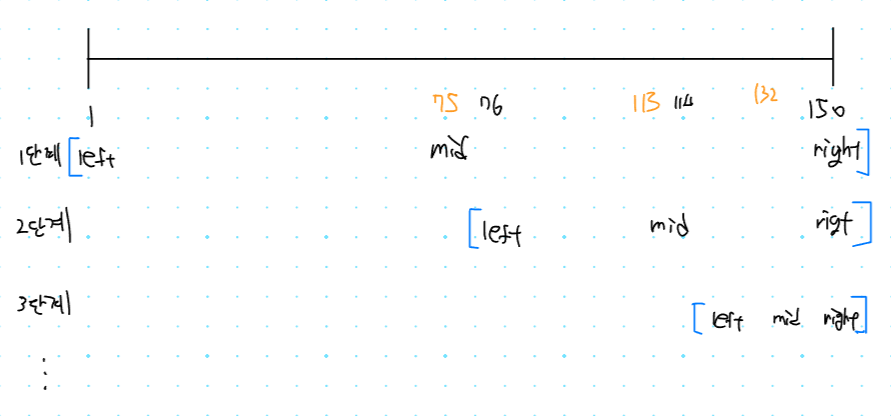 75 76 113 114 132
1 150
1단계 [left mid right]
2단계 [left mid rigt]
3단계 [left mid right]